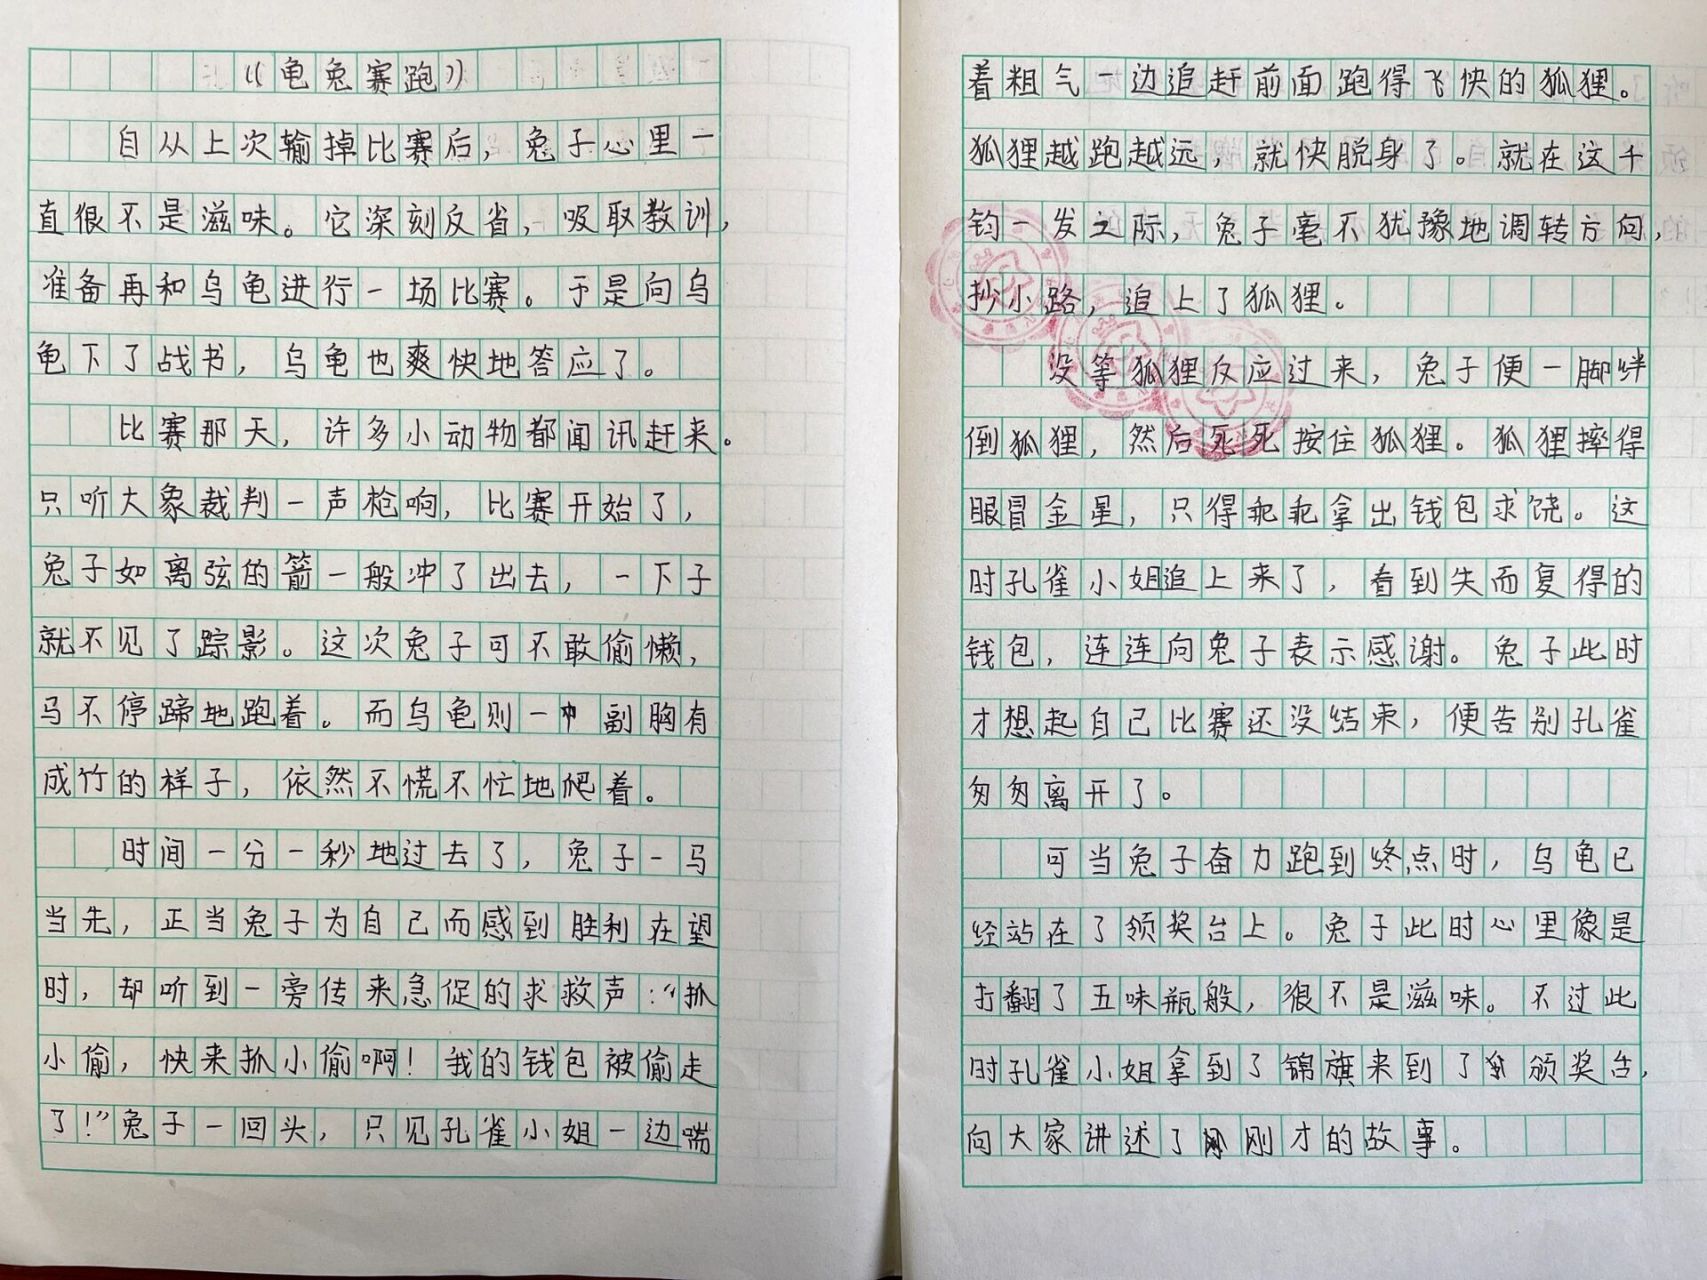 《龟兔赛跑》
自从上次输掉比赛后，兔子心里一
直很不是滋味。它深刻反省，吸取教训，
准备再和乌龟进行一场比赛。于是向乌
龟下了战书，乌龟也爽快地答应了。
比赛那天，许多小动物都闻讯赶来。
只听大象裁判一声枪响，比赛开始了，
兔子如离弦的箭一般冲了出去，一下子
就不见了踪影。这次兔子可不敢偷懒，
马不停蹄地跑着。而乌龟则一副胸有
成竹的样子，依然不慌不忙地爬着。
时间一分一秒地过去了，兔子一马
当先，正当兔子为自己而感到胜利在望
时，却听到一旁传来急促的求救声：“抓
小偷，快来抓小偷啊！我的钱包被偷走
了！”兔子一回头，只见孔雀小姐一边喘
着粗气一边追赶前面跑得飞快的狐狸。
狐狸越跑越远，就快脱身了。就在这千
钧一发之际，兔子毫不犹豫地调转方向，
抄小路，追上了狐狸。
没等狐狸反应过来，兔子便一脚绊
倒狐狸，然后死死按住狐狸。狐狸摔得
眼冒金星，只得乖乖拿出钱包求饶。这
时孔雀小姐追上来了，看到失而复得的
钱包，连连向兔子表示感谢。兔子此时
才想起自己比赛还没结束，便告别孔雀
匆匆离开了。
可当兔子奋力跑到终点时，乌龟已
经站在了领奖台上。兔子此时心里像是
打翻了五味瓶般，很不是滋味。不过此
时孔雀小姐拿到了锦旗来到了颁奖台，
向大家讲述了刚才的故事。